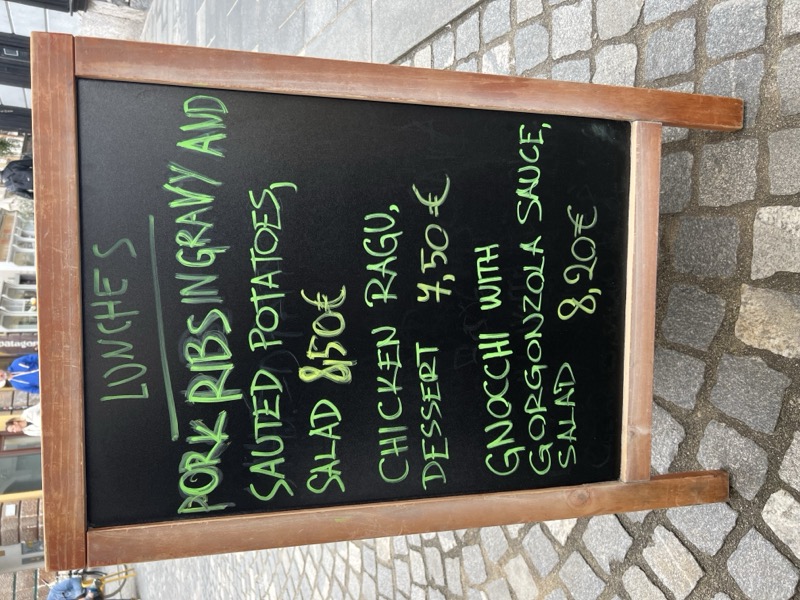 LUNCHES
PORK RIBS IN GRAVY AND
SAUTED POTATOES,
SALAD 8,50€
CHICKEN RAGU,
DESSERT 7,50€
GNOCCHI WITH
GORGONZOLA SAUCE,
SALAD 8,20€
patagonia